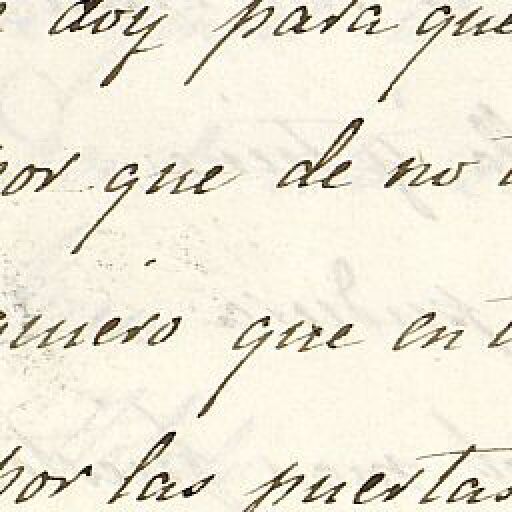 doy para que
por que de no
que en
por las puertas